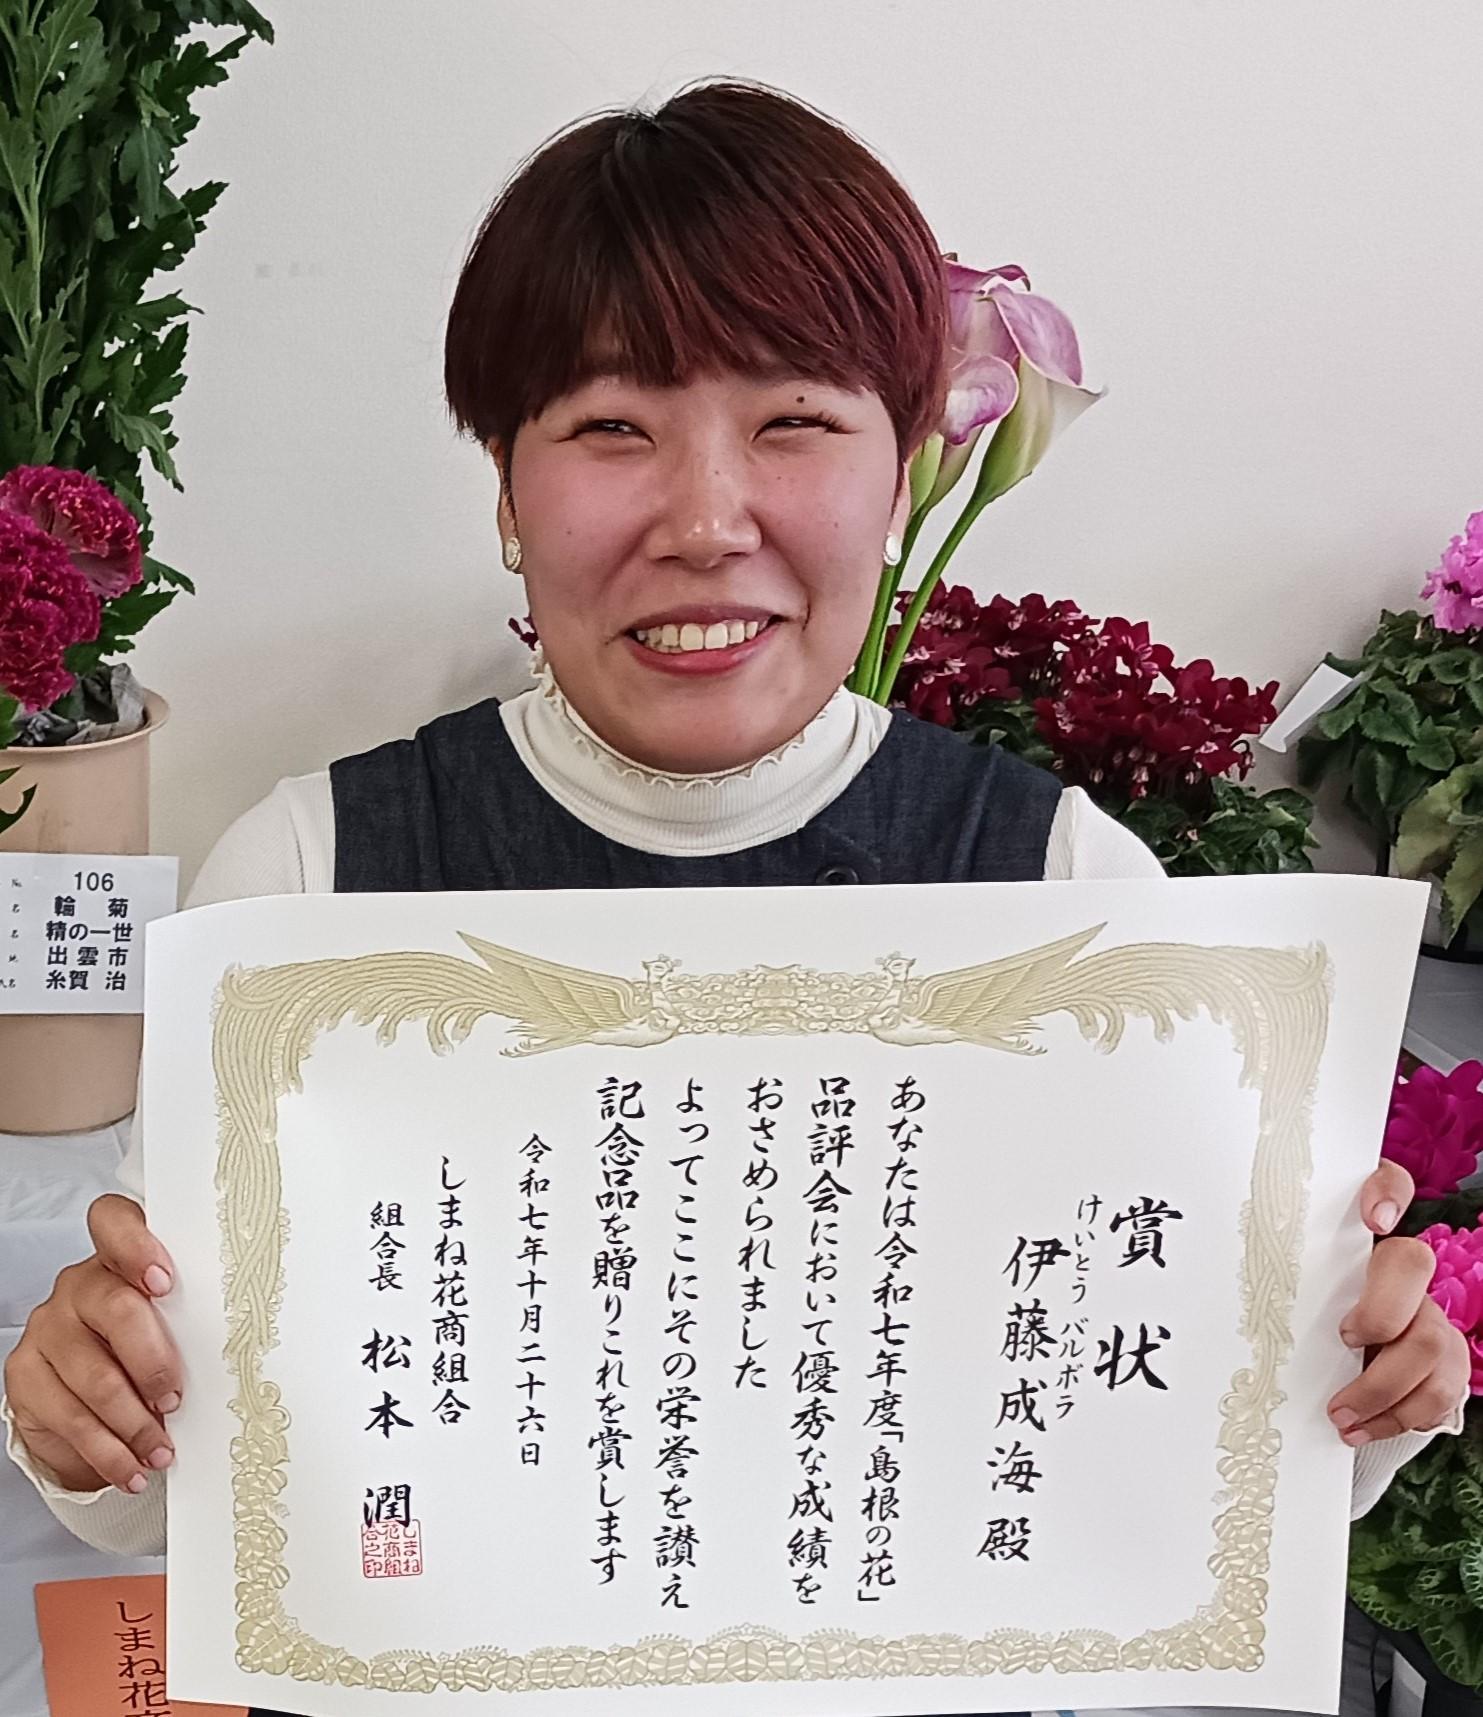 賞状
けいとう バルボラ
伊藤成海殿
あなたは令和七年度「島根の花」
品評会において優秀な成績を
おさめられました
よってここにその栄誉を讃え
記念品を贈りこれを賞します
令和七年十月二十六日
しまね花商組合
組合長 松本 潤
しまね
花商組
合之印
№ 106
名 輪 菊
名 精の一世
地 出雲市
氏名 糸賀 治
しまね花商